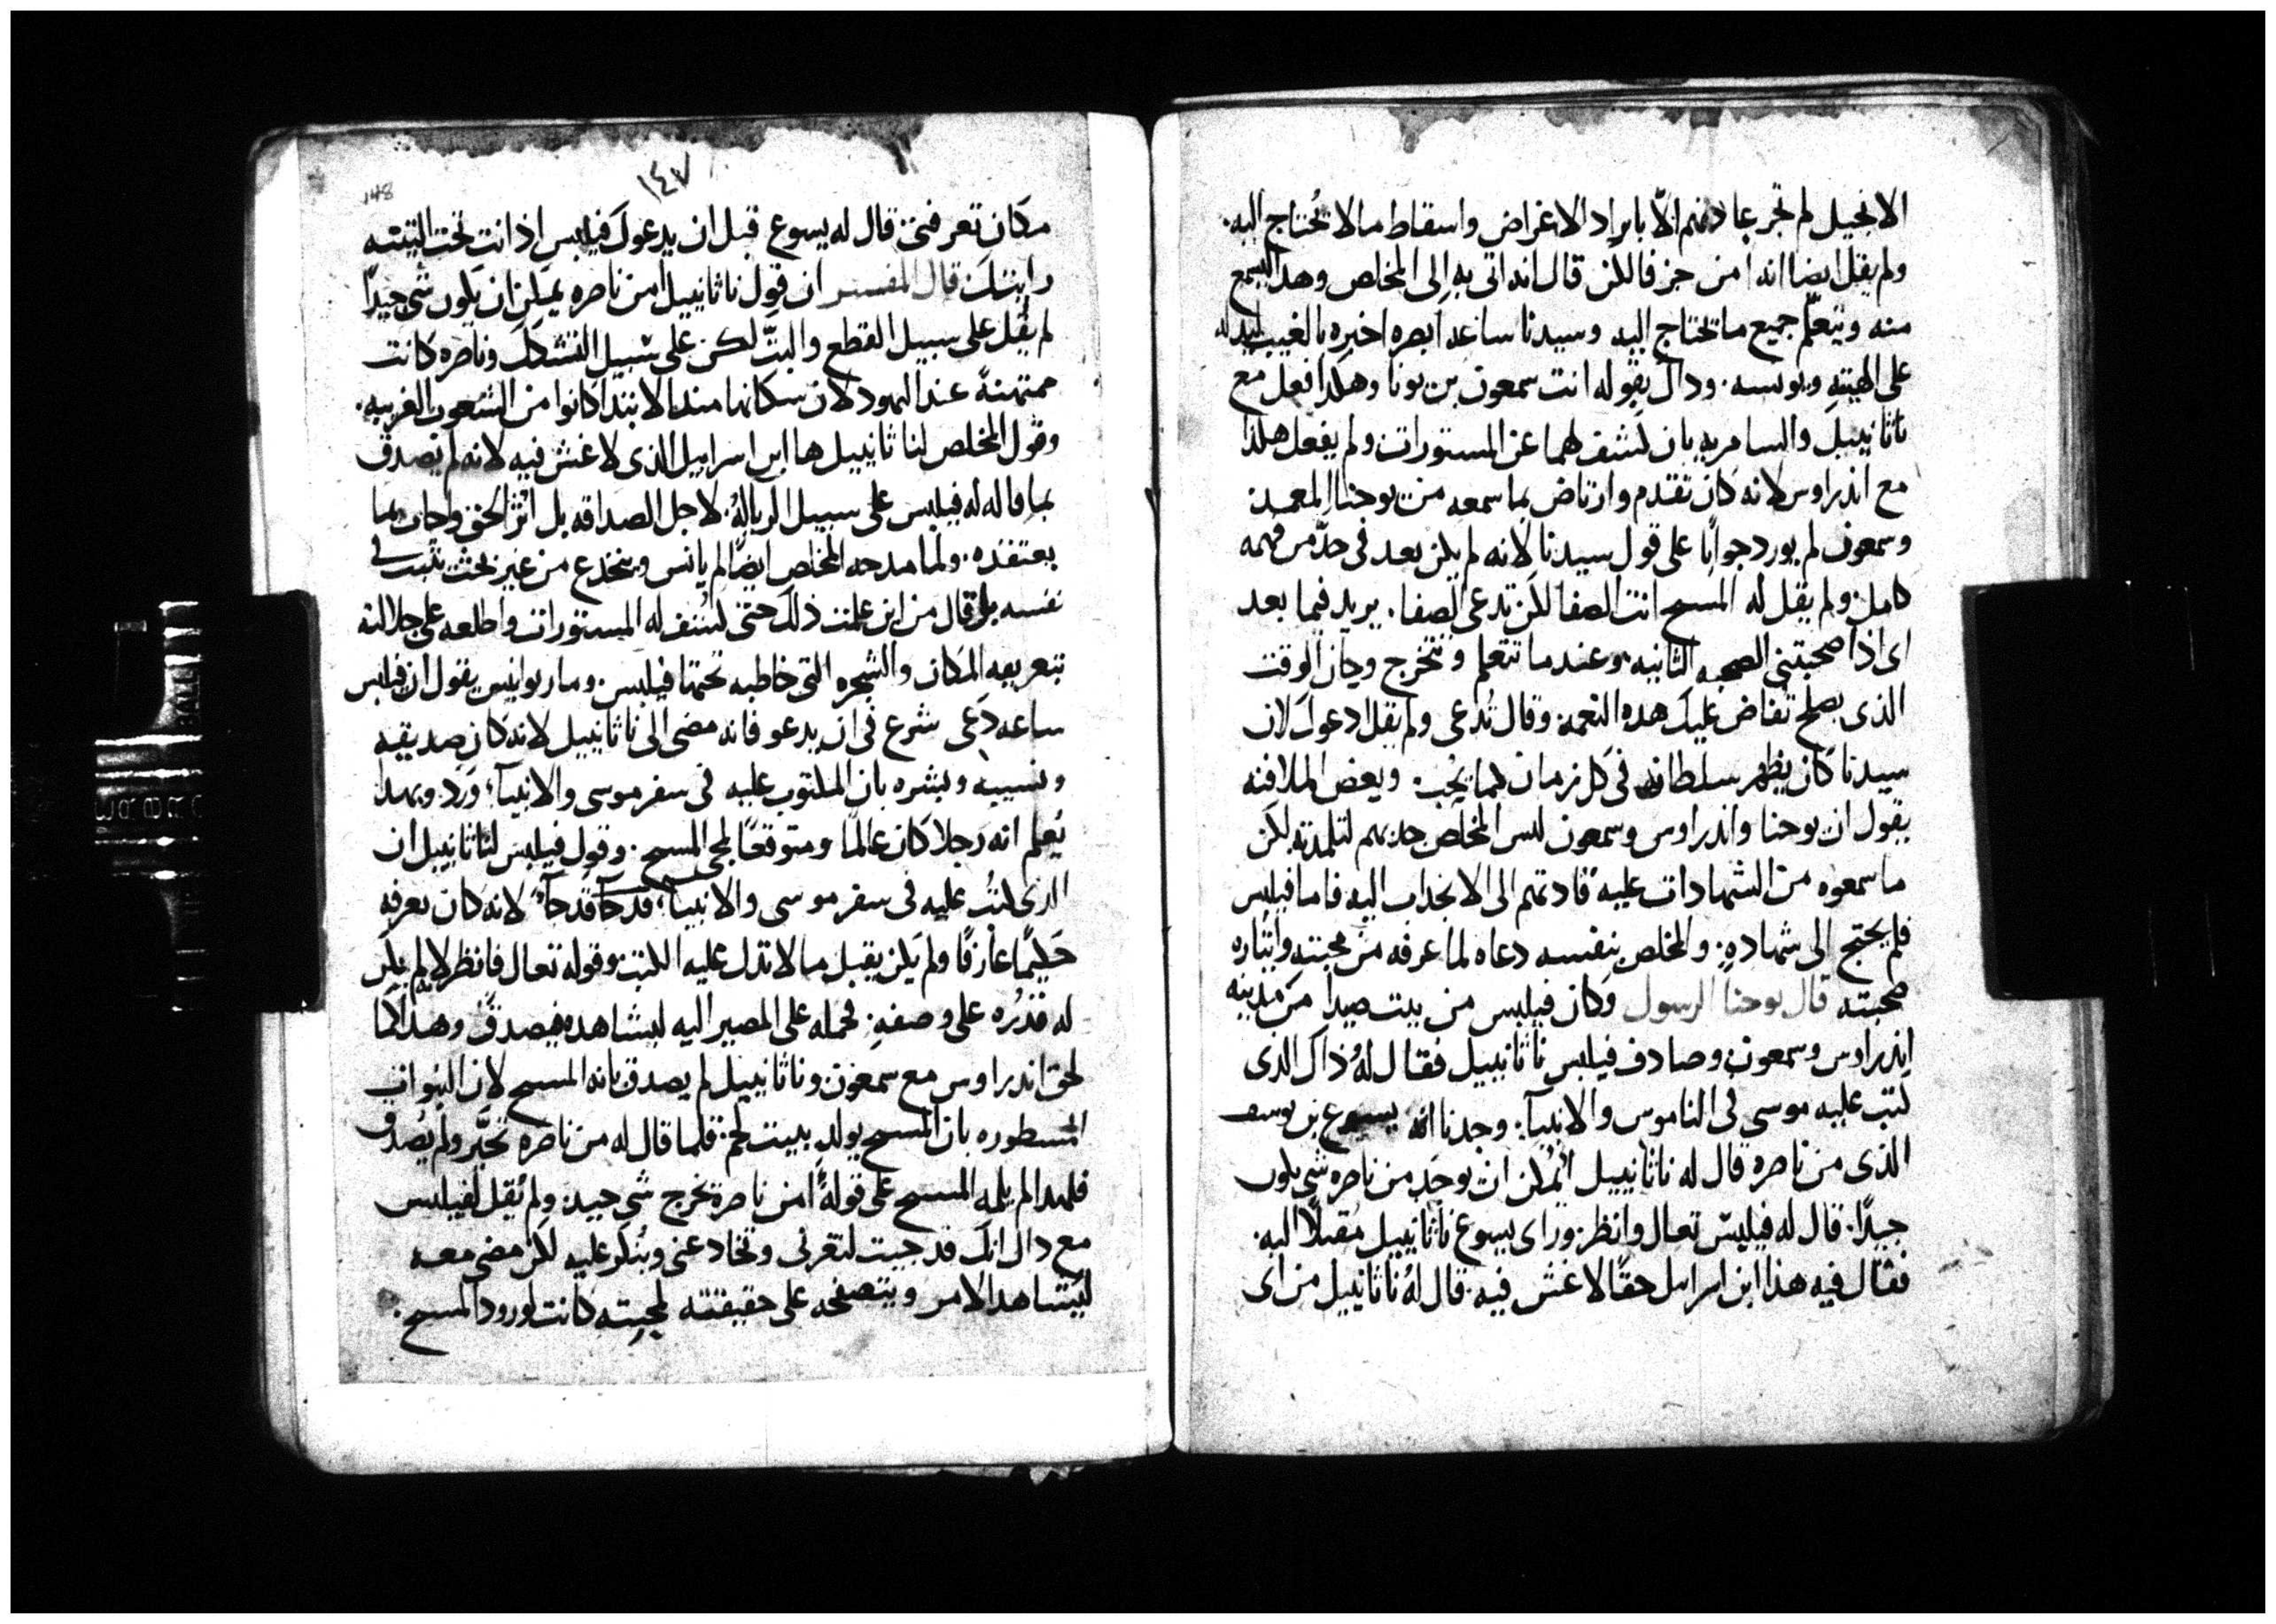 الانجيل لم تجر عادتهم الّا بايراد الاغراض واسقاط ما لا تُحتاج اليه.
ولم يقل ايضا انه امن جزفا لكن قال انه اتى به الى المخلص وهذا ليسمع
منه ويتعلّم جميع ما تحتاج اليه وسيدنا ساعه ابصره اخبره بالغيب ليدله
على الهيته وذاك بقوله انت سمعون بن يونا وهكذا فعل مع
ناثانييل والسامريه بان كشف لهما عن المستورات ولم يفعل هكذا
مع اندراوس لانه كان تقدم وارتاض بما سمعه من يوحنا المعمد
وسمعون لم يورد جوابًا على قول سيدنا لانه لم يكن بعد في حدّ من فهمه
كامل ولم يقل له المسيح انت الصفا لكن تدعى الصفا. يريد فيما بعد
اى اذا صحبتنى الصحبه الثانيه وعندما تتعلم وتتخرج وحان الوقت
الذى يصلح تفاض عليك هذه النعمه وقال تُدعى ولم يقل ادعوك لان
سيدنا كان يظهر سلطانه في كل زمان كما يجب. وبعض الملافنه
يقول ان يوحنا واندراوس وسمعون ليس المخلص جذبهم لتلمذته لكن
ما سمعوه من الشهادات عليه قادتهم الى الانجذاب اليه فاما فيلبس
فلم يحتج الى شهاده. والمخلص بنفسه دعاه لما عرفه من محبته وايثاره
صحبته قال يوحنا الرسول وكان فيلبس من بيت صيدا من مدينه
اندراوس وسمعون وصادف فيلبس ناثانييل فقال لهُ ذاك الذى
كتب عليه موسى في الناموس والانبيآ. وجدنا انه يسوع بن يوسف
الذى من ناصره قال له ناثانييل ايُمكن ان يوجد من ناصره شى يكون
جيدًا. قال له فيلبس تعال وانظر وراى يسوع ناثانييل مُقبلًا اليه.
فقال فيه هذا ابن اسرايل حقًا لا غش فيه. قال لهُ ناثانييل من اى
١٤٧
148
مكان تعرفنى قال له يسوع قبل ان يدعوك فيلبس اذ انت تحت التينه
رايتك قال المفسر ان قول ناثانييل امن ناصره يمكن ان يكون شى جيدًا
لم يقل على سبيل القطع والبتّ لكن على سبيل التشكك وناصره كانت
ممتهنةً عند اليهود لان سكانها منذ الابتدا كانوا من الشعوب الغريبه.
وقول المخلص لناثانييل ها ابن اسراييل الذى لا غش فيه لانه لم يصدق
بما قاله له فيلبس على سبيل لاجل الصداقه بل اثر الحق وجاب بما
يعتقده. ولما مدحه المخلص ايضًا لم يانس وينخدع من غير بحث تثبت في
نفسه بل قال من اين علمت ذلك حتى كشف له المستورات واطلعه على جلالته
بتعريفه المكان والشجره التى خاطبه تحتها فيلبس. ومار يوانيس يقول ان فيلبس
ساعه دَعى شرع في ان يدعو فانه مضى الى ناثانييل لانه كان صديقه
ونسيبه وبشره بان المكتوب عليه في سفر موسى والانبيآ وَرَد وبهذا
يُعلم انه رجلا كان عالمًا ومتوقعًا لمجى المسيح. وقول فيلبس لناثانييل ان
الذى كتُب عليه في سفر موسى والانبيآ قد جآ قد جآ لانه كان يعرفه
حَكيمًا عارفًا ولم يكن يقبل ما لا تدل عليه الكتب وقوله تعال فانظر لانه لم يكن
له قدُره على وصفهِ. فحمله على المصير اليه ليشاهده فيصدق وهذا كما
لحق اندراوس مع سمعون وناثانييل لم يصدق بانه المسيح لان النبوات
المسطوره بان المسيح يولد ببيت لحم. فلما قال له من ناصره تحيَّر ولم يُصدق
فلهذا لم يلمه المسيح على قولهُ امن ناصرة يخرج شى جيد. ولم يقل لفيلبس
مع ذاك انك قد جيت لتغرنى وتخادعنى وينكر عليه لكن مضى معه
ليشاهد الامر ويتصفحه على حقيقته لمحبته كانت لورود المسيح.